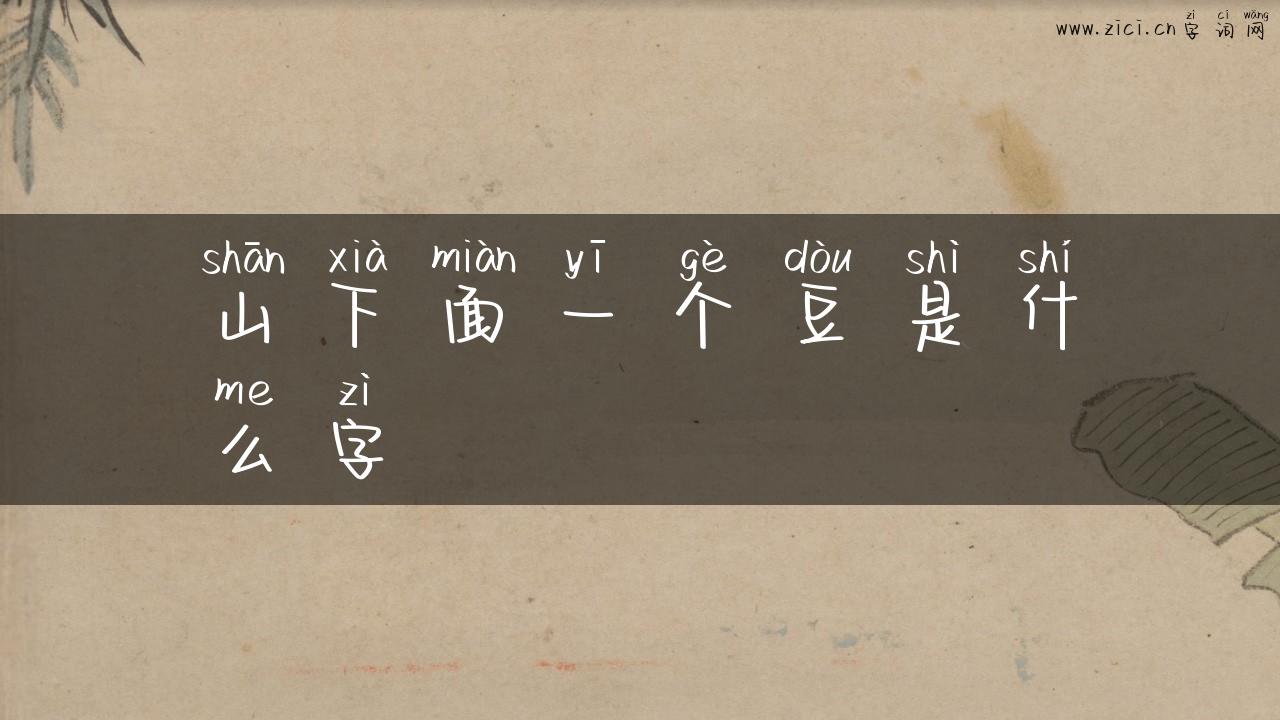 zì cí wǎng
www.zici.cn 字词网
shān xià miàn yī gè dòu shì shí
山下面一个豆是什
me zì
么字